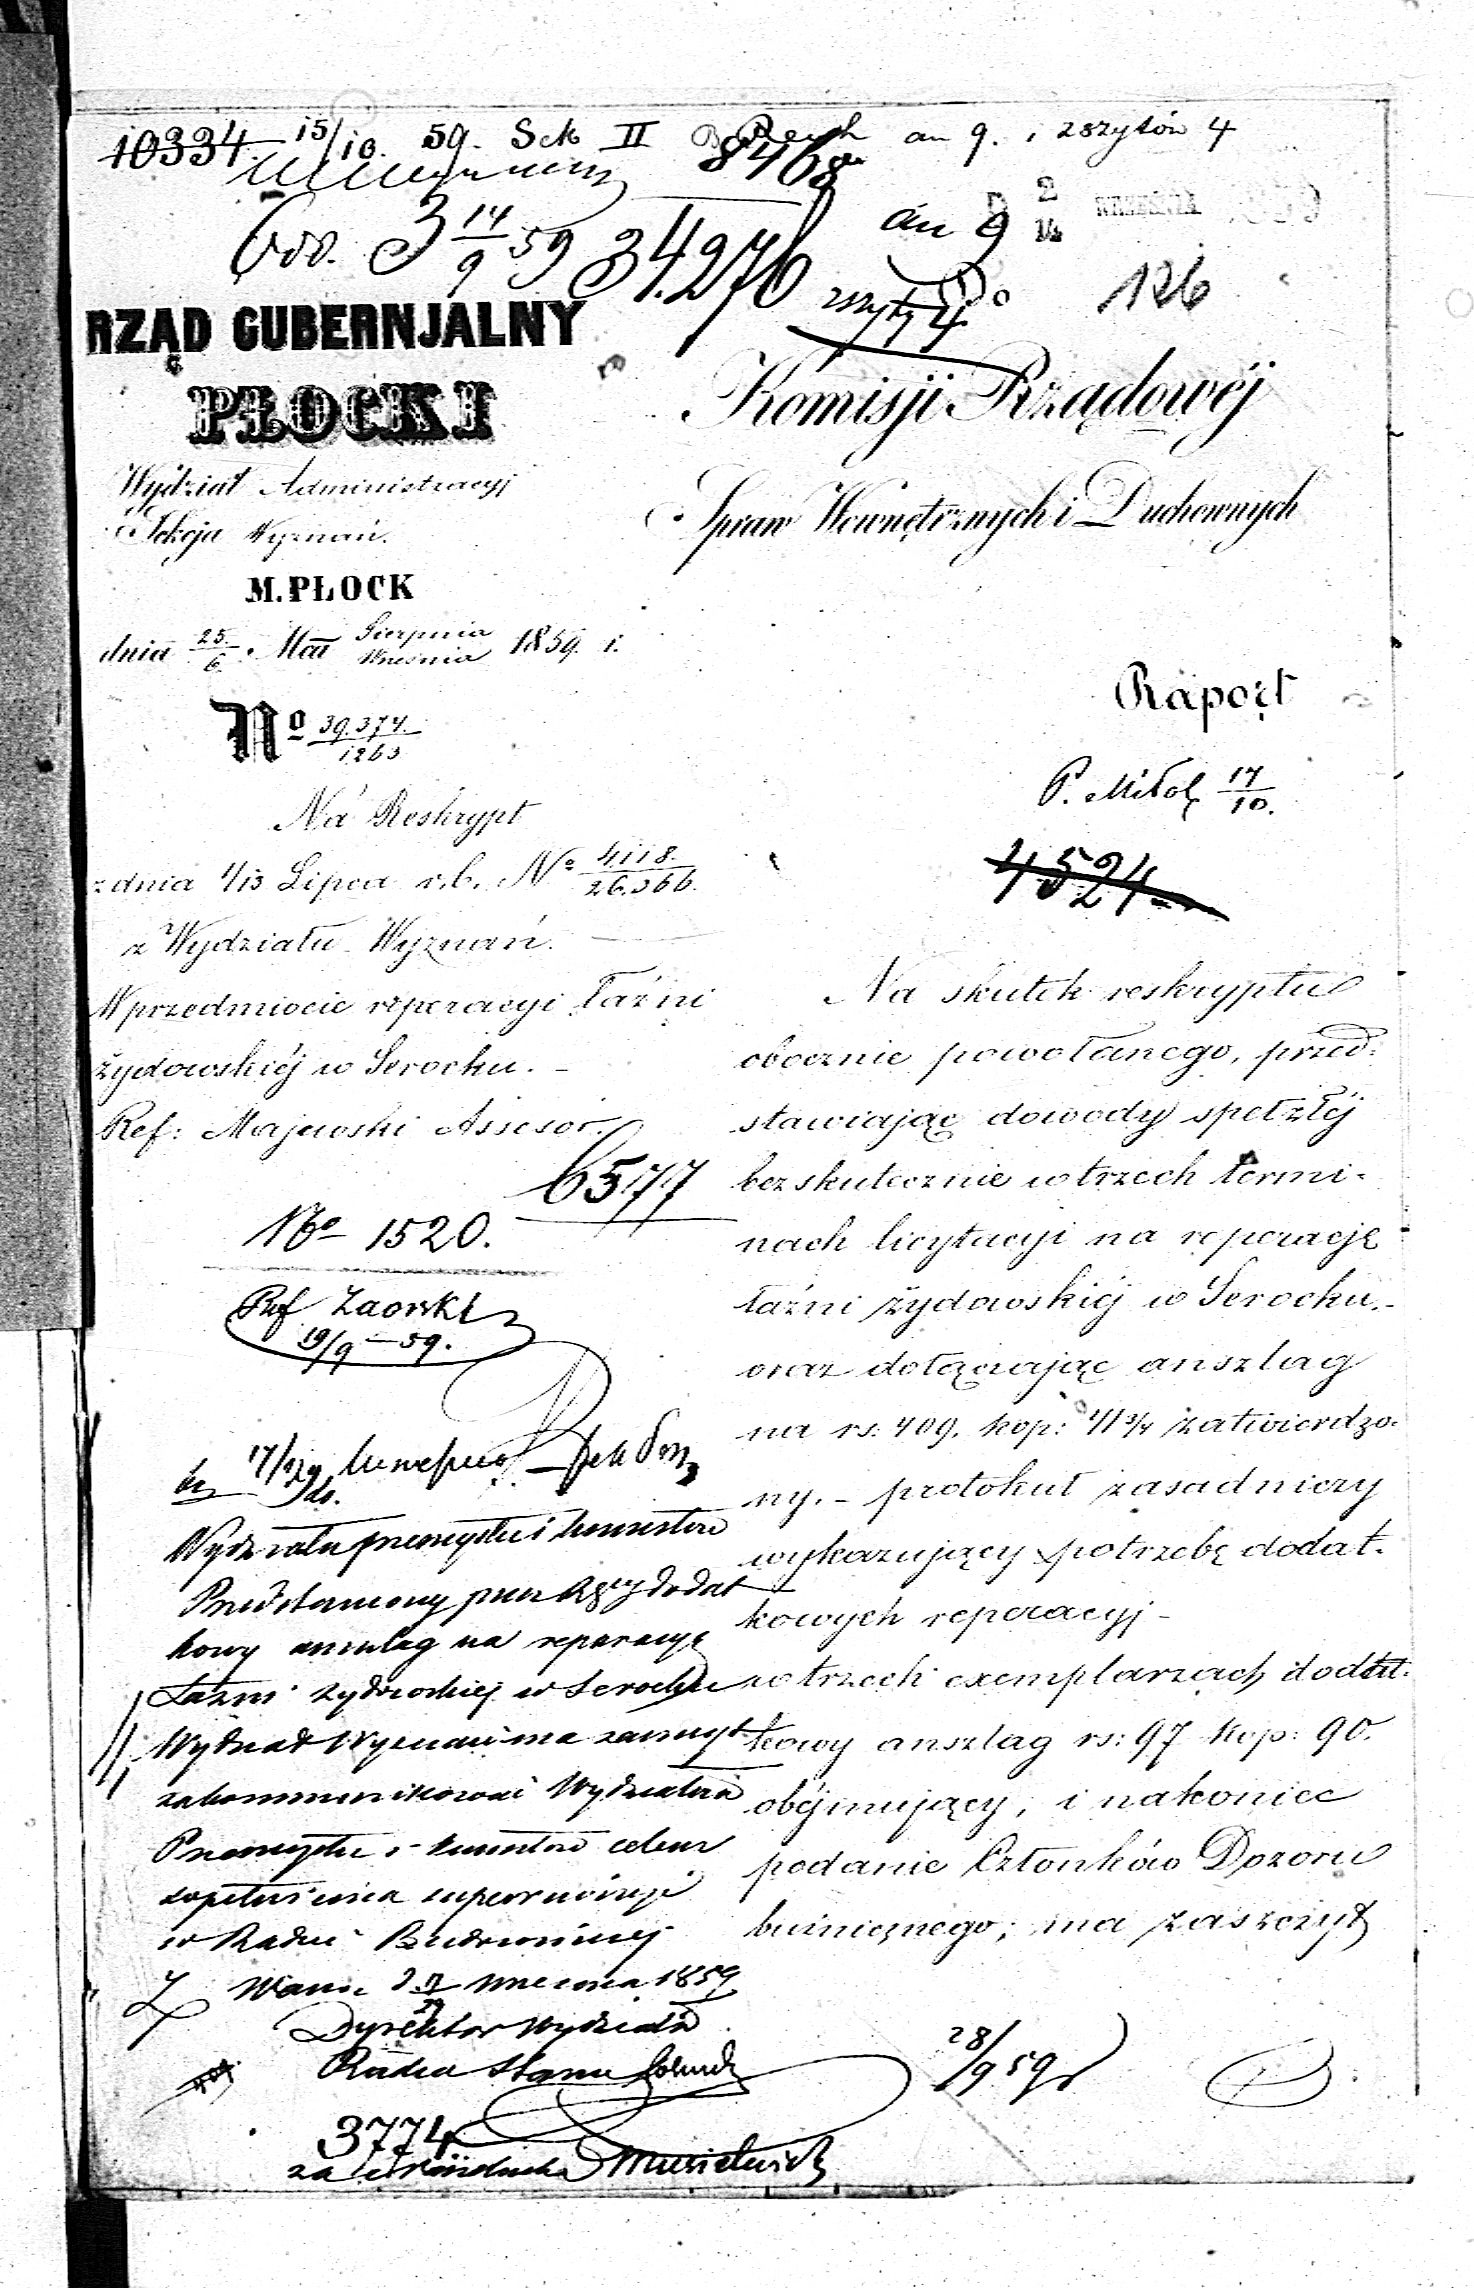 10334. 15/10. 59. Sek II 8468 an 9. i zszytów 4
Odd. 3 14/9 59 34.276 an 9 zszyty 4
2/14 WRZEŚNIA
126
RZĄD GUBERNJALNY
PŁOCKI
Wydział Administracyj
Sekcja Wyznań.
M. PŁOCK
dnia 25./6. Sierpnia/Września 1859 r.
No 39.374./1263
Na Reskrypt
z dnia 1/13 Lipca r.b. No 4118./26.366.
z Wydziału Wyznań.
W przedmiocie reperacyi łaźni
żydowskiéj w Serocku. -
Ref: Majewski Assesor.
6577
No 1520.
Ref Zaorski
19/9 - 59.
17/9
Wydziału przemysłu i kunsztów
Przedstawiony przez Rząd dodat
kowy anszlag na reparacyę
Łaźni żydowskiej w Serocku
Wydział Wyznań ma zaszczyt
zakommunikować Wydziałowi
Przemysłu i kunsztów celem
dopełnienia superrewizyi
w Radzie Budowniczej
Września 1859
Dyrektor Wydziału
Radca Stanu
3774
za
Do
Komisji Rządowéj
Spraw Wewnętrznych i Duchownych
Raport
P. Mitol 17/10.
4524
Na skutek reskryptu
obocznie powołanego, przed-
stawiając dowody spełzłéj
bezskutecznie w trzech termi-
nach licytacyi na reperację
łaźni żydowskiéj w Serocku. -
oraz dołączając anszlag
na rs: 409. kop: 41 3/4 zatwierdzo-
ny. - protokuł zasadniczy
wykazujący potrzebę dodat-
kowych reperacyj -
w trzech exemplarzach dodat-
kowy anszlag rs: 97 kop: 90.
obéjmujący, i nakoniec
podanie Członków Dozoru
bużniczego; ma zaszczyt
28/9 59